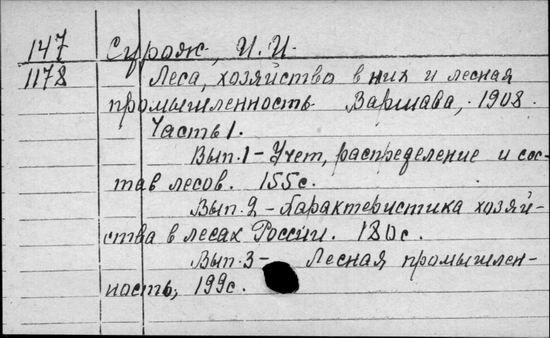 147 Сурож, И.И.
1178 Леса, хозяйство в них и лесная
промышленность. Варшава, 1908.
Часть 1.
Вып.1 - Учет, распределение и сос-
тав лесов. 155с.
Вып.2 - Характеристика хозяй-
ства в лесах России. 180с.
Вып.3 - Лесная промышлен-
ность, 199с.